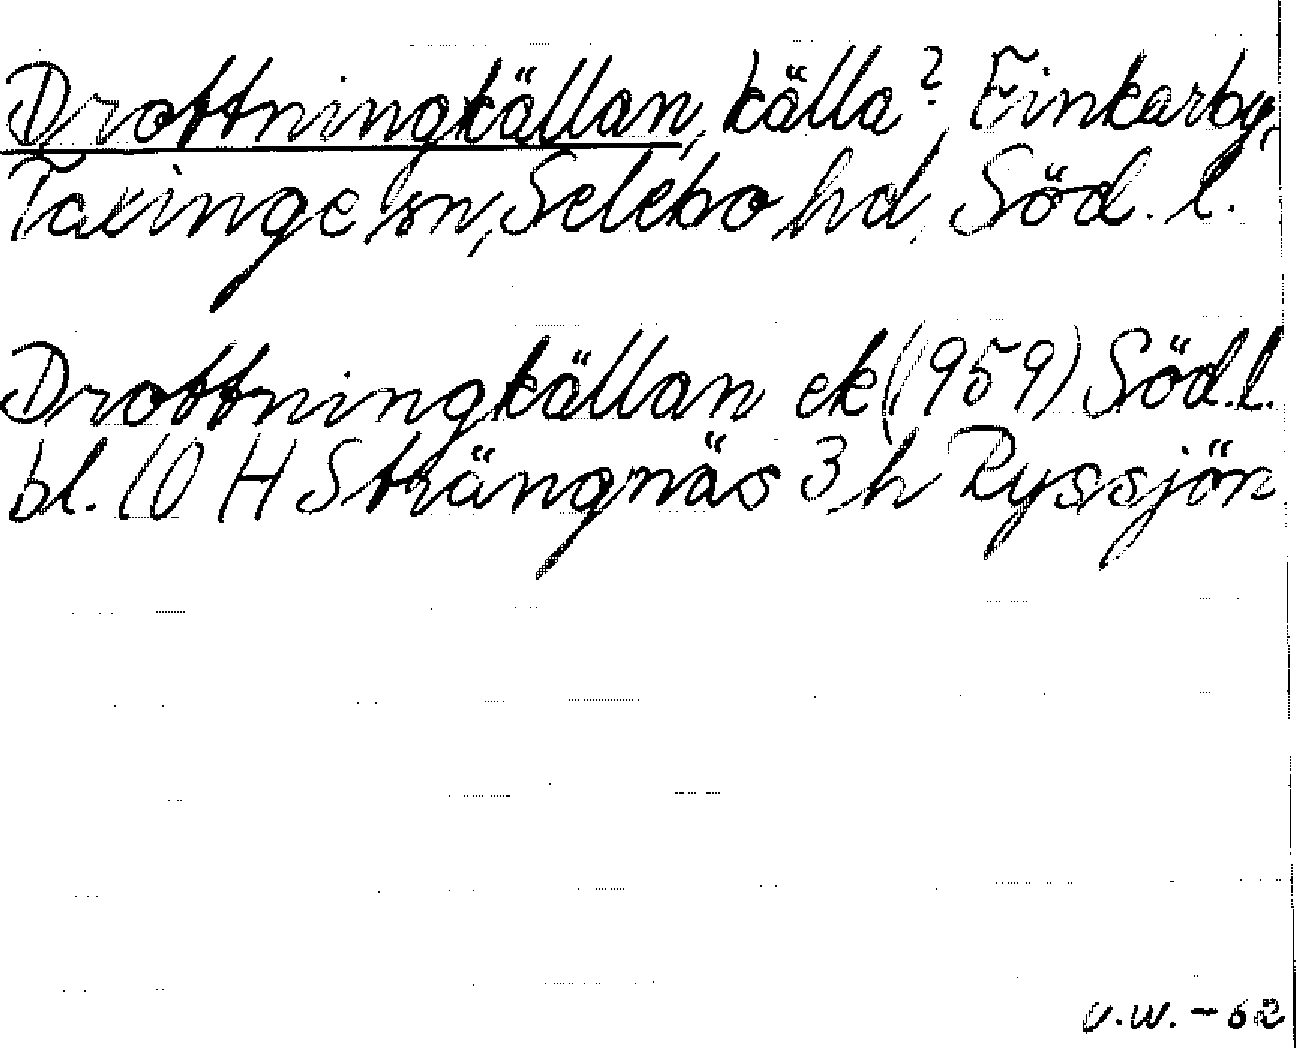 Drottningkällan, källa? Finkarby,
Taxinge sn, Selebo hd, Söd. l.
Drottningkällan ek (1959) Söd. l.
bl. 10 H Strängnäs 3 h Ryssjön
V.W. - 62